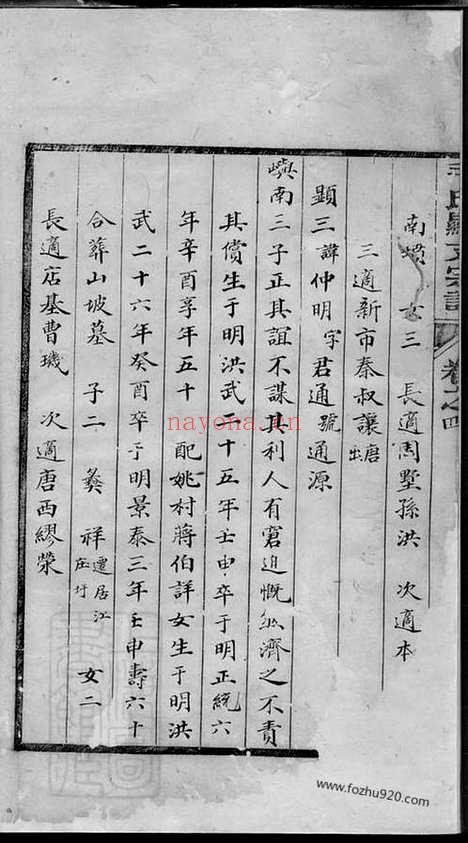 氏羅文宗譜 卷之四
南墳 女三 長適周墅孫洪 次適本
塘 三適新市秦叔讓
顯三諱仲明字君通號通源
嶼南三子正其誼不謀其利人有窘迫慨然濟之不責
其償生于明洪武二十五年壬申卒于明正統六
年辛酉享年五十 配姚村蔣伯詳女生于明洪
武二十六年癸酉卒于明景泰三年壬申壽六十
合葬山坡墓 子二 彝 祥遷居江庄圩 女二
長適店基曹璣 次適唐西繆滎
nayona.cn
www.fozhu920.com